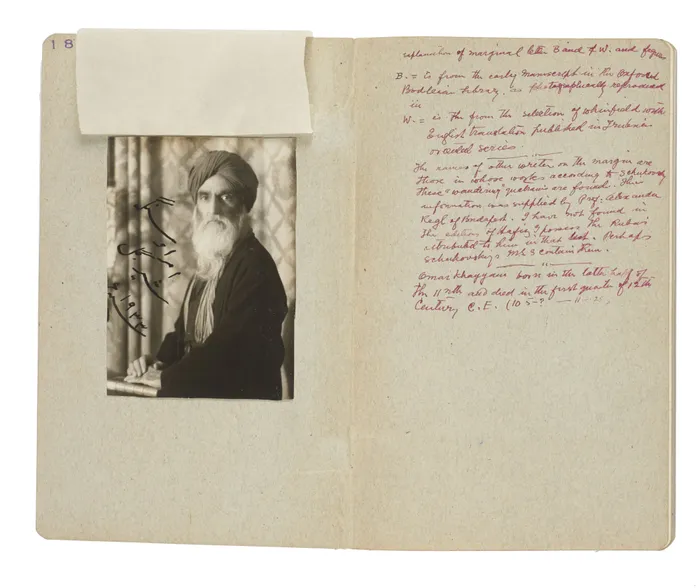 18
explanation of marginal letter B and of W. and figure
B. = is from the early Manuscript in the Oxford
Bodleian Library, as photographically reproduced
in
W. = is the from the selection of whinfield with
English translation published in Trubner's
oriental series.
The names of other writer on the margin are
those in whose works according to Schukovsky
these "wandering" quatrains are found. This
information was supplied by Prof. Alexander
Kegl of Budapest. I have not found in
the edition of Hafiz I possess the Rubai
attributed to him in that list. Perhaps
Schukovsky's MSS contain them.
Omar Khayyam born in the latter half of
the 11 nth and died in the first quarter of 12th
Century C.E. (105-? — 11
۱۹۳۳